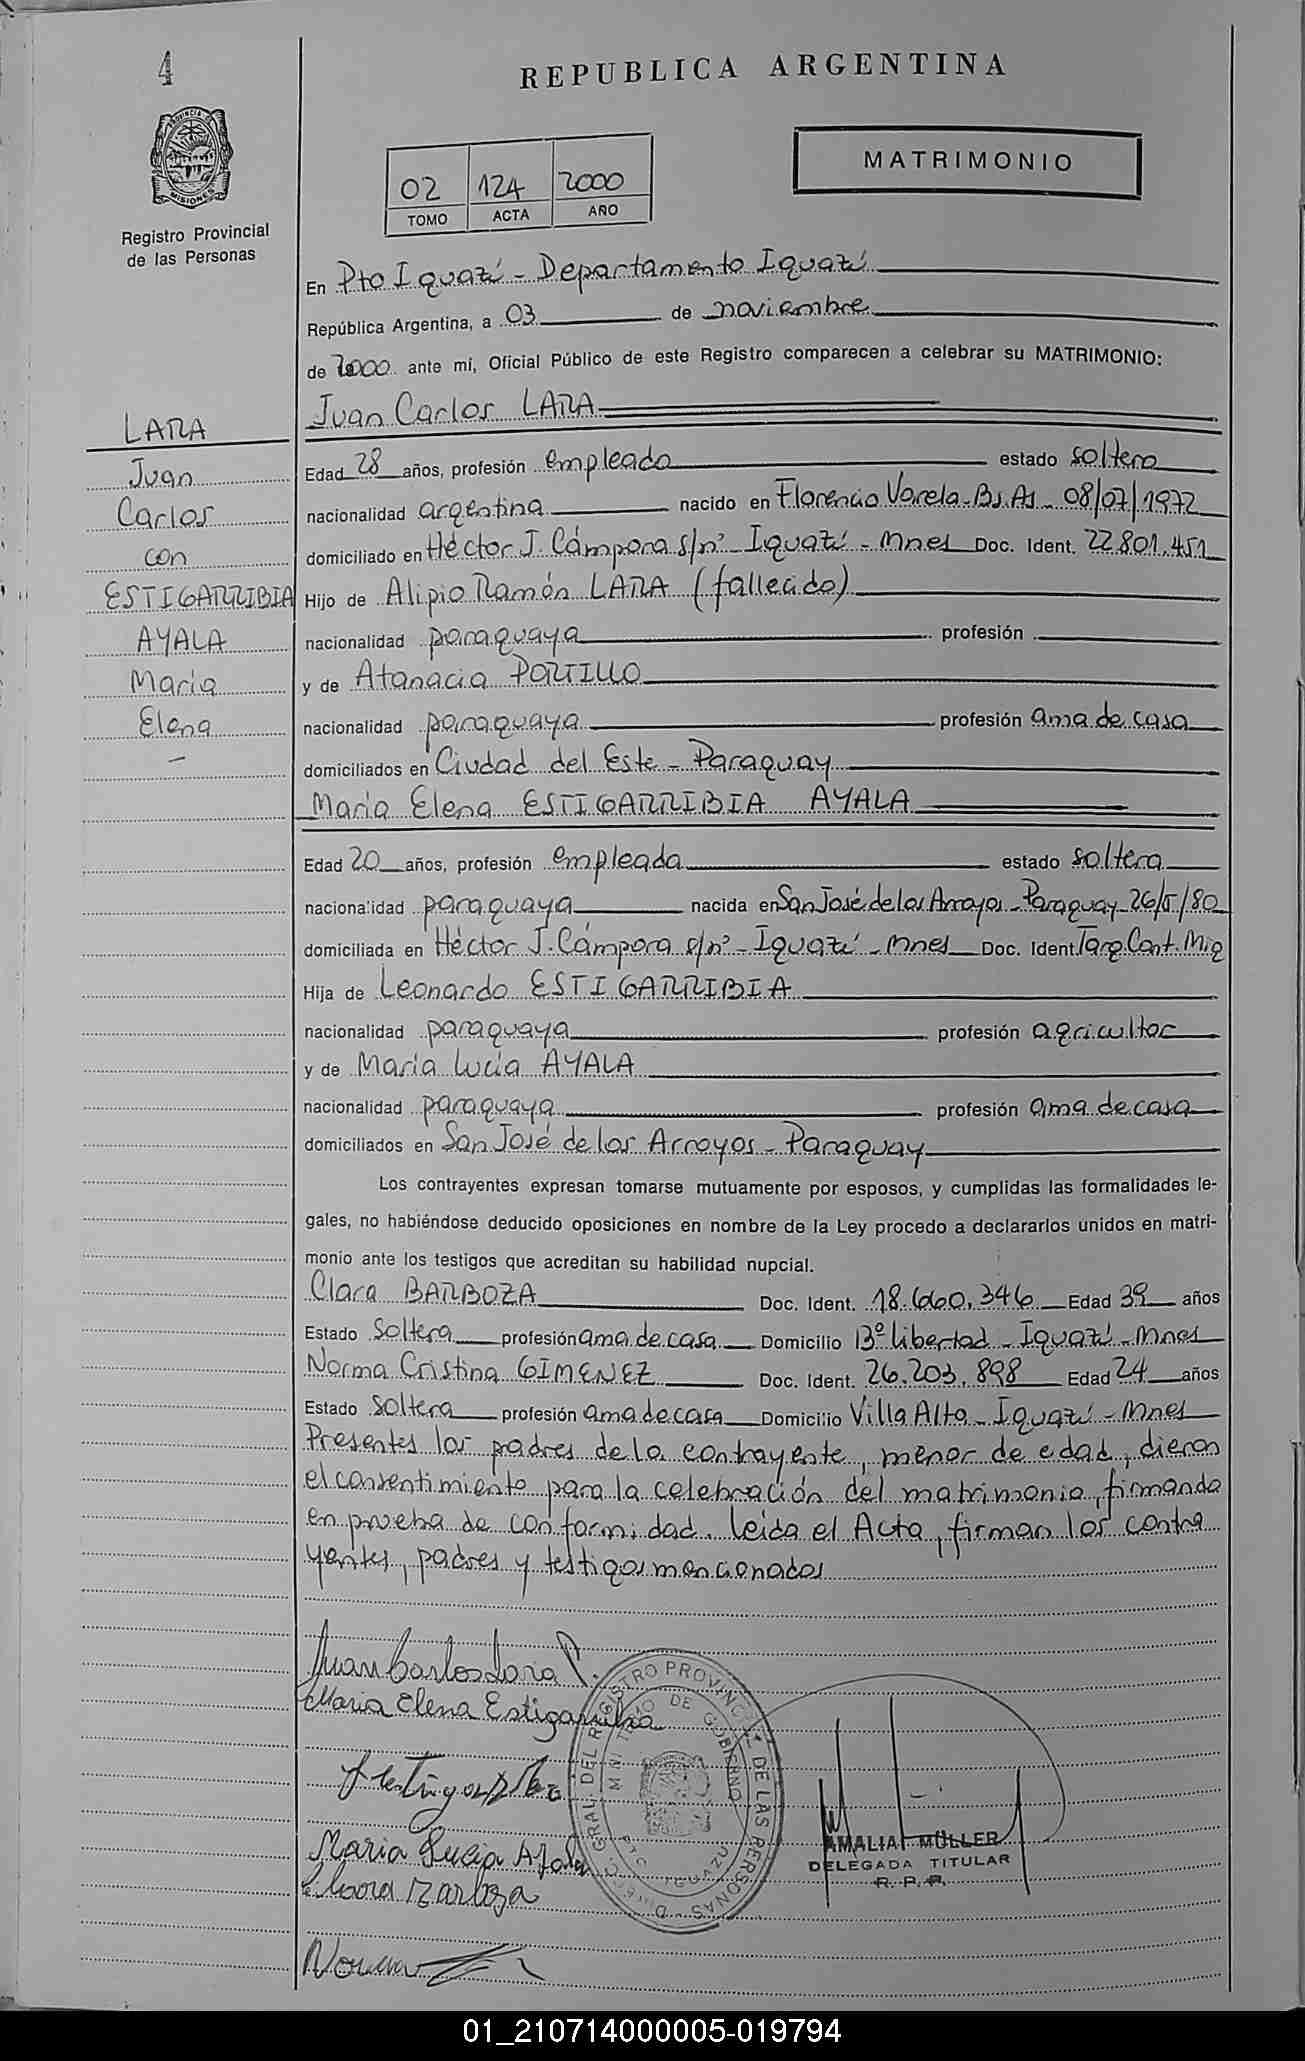 4
REPUBLICA ARGENTINA
PROVINCIA DE MISIONES
Registro Provincial
de las Personas
02 124 2000
TOMO ACTA AÑO
MATRIMONIO
En Pto Iguazú - Departamento Iguazú
República Argentina, a 03 de noviembre
de 2000 ante mí, Oficial Público de este Registro comparecen a celebrar su MATRIMONIO:
LARA
Juan
Carlos
con
ESTIGARRIBIA
AYALA
María
Elena
-
Juan Carlos LARA
Edad 28 años, profesión empleado estado soltero
nacionalidad argentina nacido en Florencio Varela - Bs. As - 08/07/1972
domiciliado en Héctor J. Cámpora s/nº - Iguazú - Mnes Doc. Ident. 22.801.451
Hijo de Alipio Ramón LARA (fallecido)
nacionalidad paraguaya profesión
y de Atanacia PORTILLO
nacionalidad paraguaya profesión ama de casa
domiciliados en Ciudad del Este - Paraguay
María Elena ESTIGARRIBIA AYALA
Edad 20 años, profesión empleada estado soltera
nacionalidad paraguaya nacida en San José de los Arroyos - Paraguay - 26/5/80
domiciliada en Héctor J. Cámpora s/nº - Iguazú - Mnes Doc. Ident. Targ. Cont. Mig
Hija de Leonardo ESTIGARRIBIA
nacionalidad paraguaya profesión agricultor
y de María Lucía AYALA
nacionalidad paraguaya profesión ama de casa
domiciliados en San José de los Arroyos - Paraguay
Los contrayentes expresan tomarse mutuamente por esposos, y cumplidas las formalidades le-
gales, no habiéndose deducido oposiciones en nombre de la Ley procedo a declararlos unidos en matri-
monio ante los testigos que acreditan su habilidad nupcial.
Clara BARBOZA Doc. Ident. 18.660.346 Edad 39 años
Estado soltera profesión ama de casa Domicilio Bº libertad - Iguazú - Mnes
Norma Cristina GIMENEZ Doc. Ident. 26.203.898 Edad 24 años
Estado soltera profesión ama de casa Domicilio Villa Alta - Iguazú - Mnes
Presentes los padres de la contrayente, menor de edad, dieron
el consentimiento para la celebración del matrimonio, firmando
en prueba de conformidad. leída el Acta, firman los contra
yentes, padres y testigos mencionados
Juan Carlos Lara P.
Maria Elena Estigarribia
Maria Lucia Ayala
Clara Barboza
Norma
DIRECC. GRAL. DEL REGISTRO PROVINCIAL DE LAS PERSONAS
MINISTERIO DE GOBIERNO
PTO. IGUAZU
AMALIA MÜLLER
DELEGADA TITULAR
R. P. P.
01_210714000005-019794